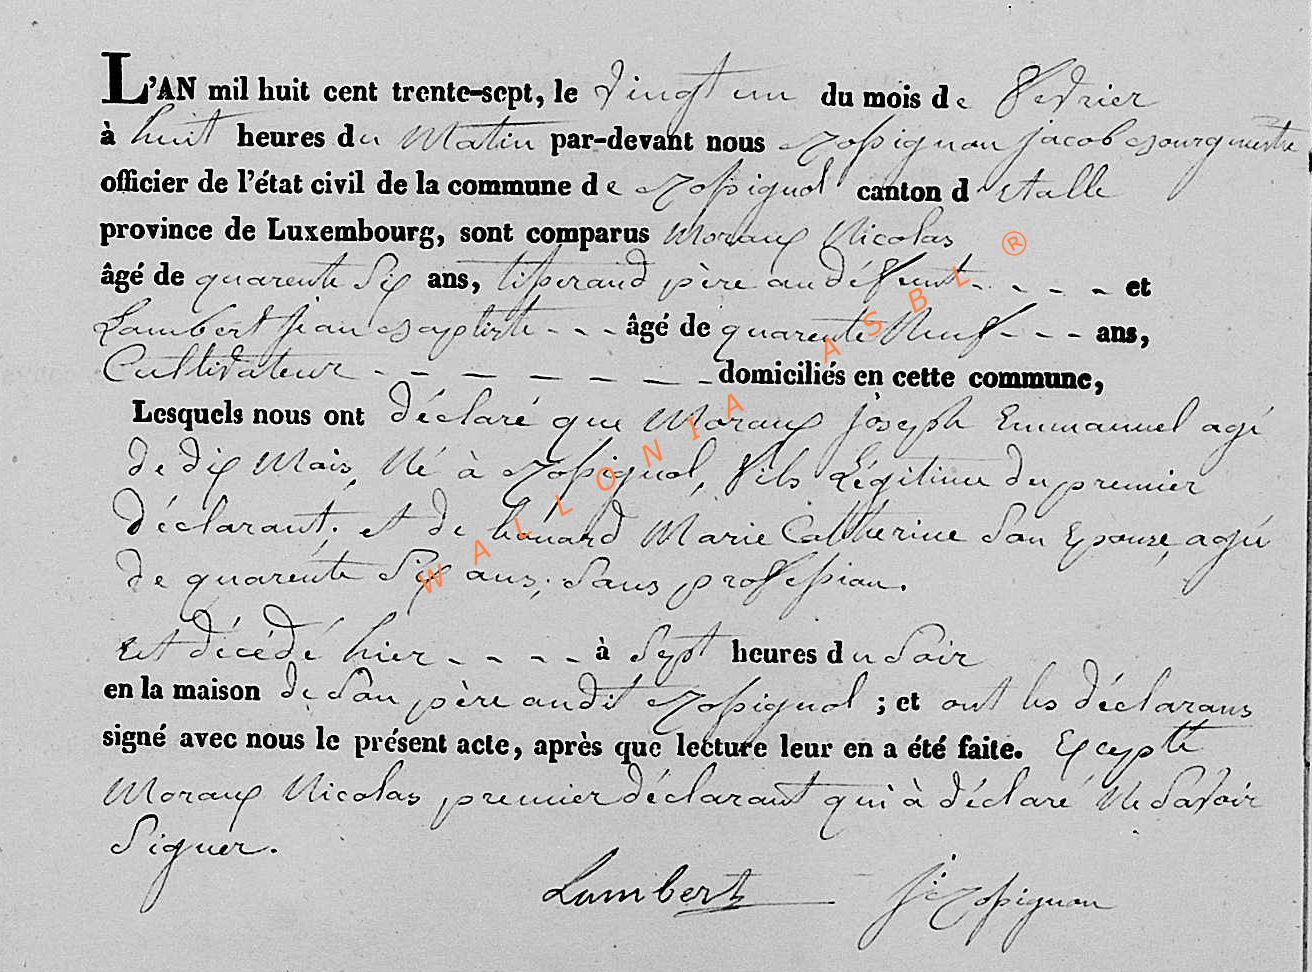 L'AN mil huit cent trente-sept, le vingt un du mois de Fevrier
à huit heures du Matin par-devant nous Rossignon Jacob Bourgmestre
officier de l'état civil de la commune de Rossignol canton d'Etalle
province de Luxembourg, sont comparus Moraux Nicolas
âgé de quarente Six ans, tisserand père au défunt - - - - et
Lambert Jean Baptiste - - - âgé de quarente Neuf - - - ans,
Cultivateur - - - - - - - - domiciliés en cette commune,
Lesquels nous ont déclaré que Moraux Joseph Emmanuel agé
de dix Mois, Né à Rossignol, Fils Légitime du premier
déclarant; et de houard Marie Catherine Son Epouse, agée
de quarente Six ans, Sans profession.
Est décédé hier - - - - à Sept heures du Soir
en la maison de Son père audit Rossignol ; et ont les déclarans
signé avec nous le présent acte, après que lecture leur en a été faite. Excepté
Moraux Nicolas premier déclarant qui à déclaré Ne Savoir
Signer.
Lambert Je Rossignon
WALLONIA ASBL ®